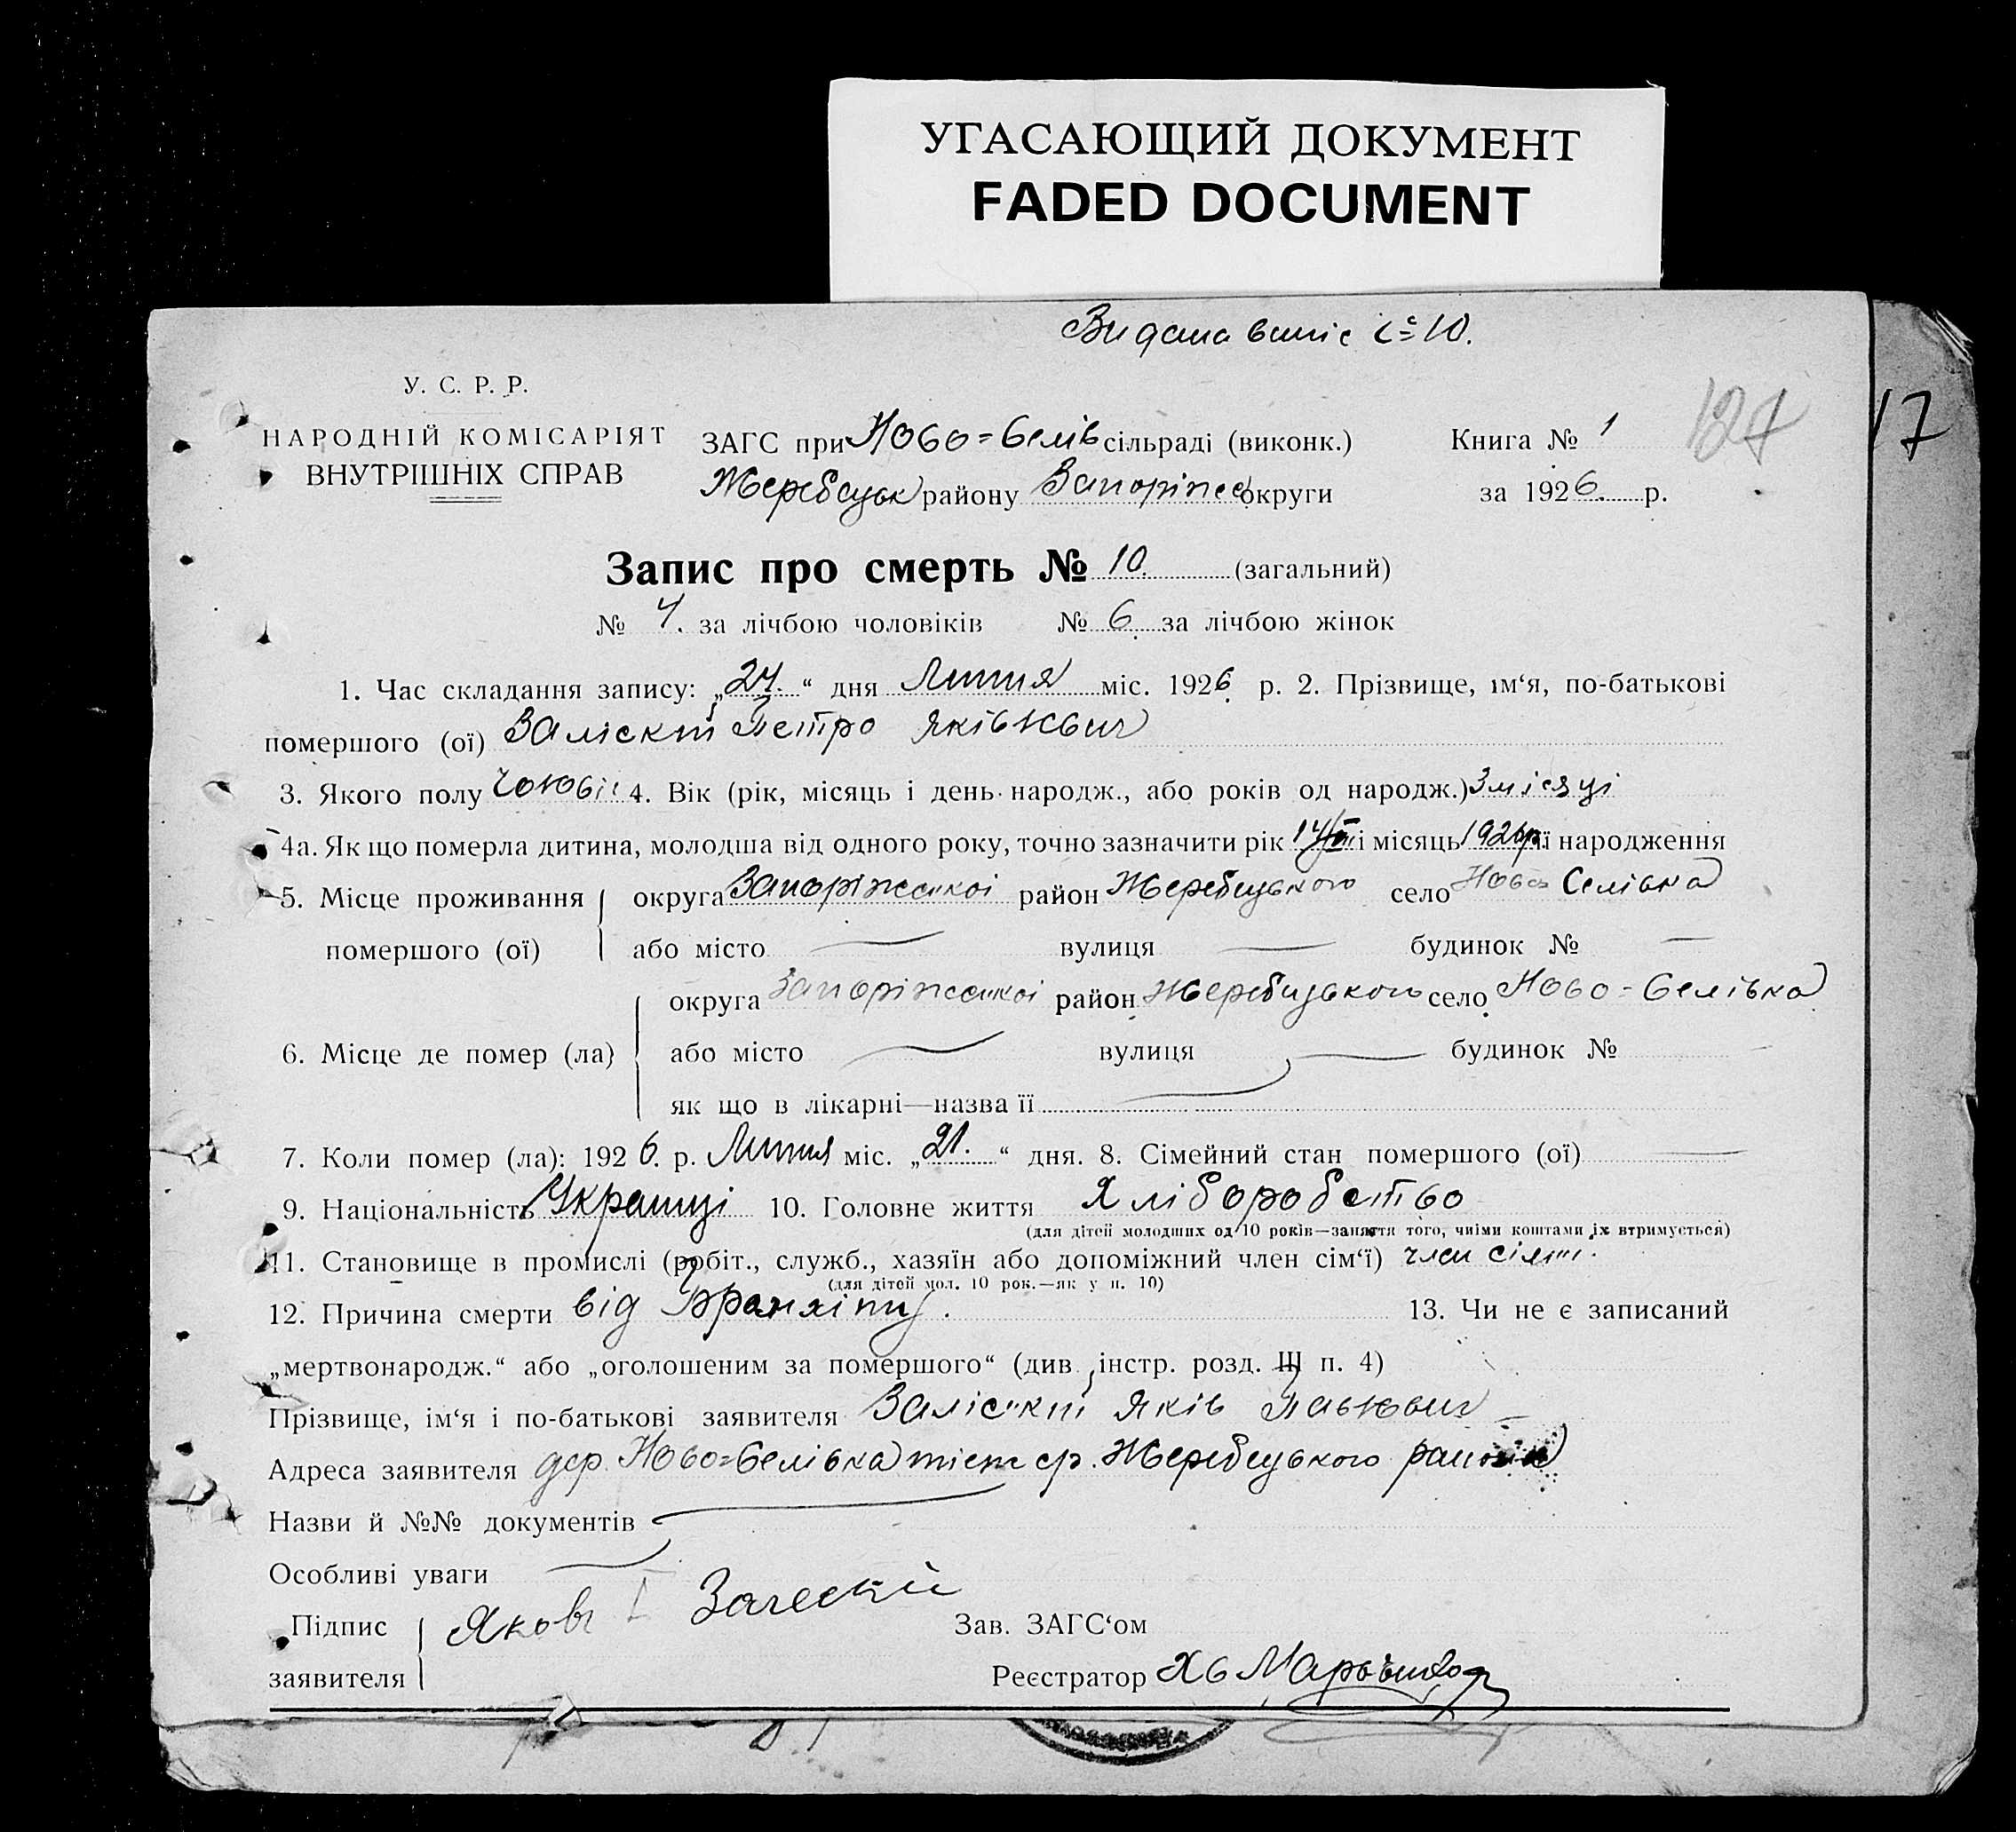 УГАСАЮЩИЙ ДОКУМЕНТ
FADED DOCUMENT
Видана випіс
У. С. Р. Р.
НАРОДНІЙ КОМІСАРІЯТ
ВНУТРІШНІХ СПРАВ
ЗАГС при Ново=Селів сільраді (виконк.)
Жеребецьк району Запоріжс округи
Книга № 1
за 1926. р.
127
17
Запис про смерть № 10. (загальний)
№ 4. за лічбою чоловіків № 6 за лічбою жінок
1. Час складання запису: „24.“ дня Липня міс. 1926 р. 2. Прізвище, ім‘я, по-батькові
помершого (ої) Заліскій Петро Яківлевич
3. Якого полу 4. Вік (рік, місяць і день народж., або років од народж.) 3 місяці
4а. Як що померла дитина, молодша від одного року, точно зазначити рік і місяць 1926р. її народження
5. Місце проживання помершого (ої) округа Запоріжської район Жеребецького село Ново Селівка
або місто — вулиця — будинок № —
6. Місце де помер (ла) округа Запоріжської район Жеребецького село Ново=Селівка
або місто — вулиця — будинок № —
як що в лікарні—назва її —
7. Коли помер (ла): 1926. р. Липня міс. „21.“ дня. 8. Сімейний стан помершого (ої) —
9. Національність Українці 10. Головне життя Хліборобство
(для дітей молодших од 10 років—заняття того, чиїми коштами їх втримується)
11. Становище в промислі (робіт., служб., хазяїн або допоміжний член сім‘ї) член сім‘ї.
(для дітей мол. 10 рок.—як у п. 10)
12. Причина смерти від 13. Чи не є записаний
„мертвонародж.“ або „оголошеним за помершого“ (див. інстр. розд. III п. 4)
Прізвище, ім‘я і по-батькові заявителя Заліський Яків Павлович
Адреса заявителя дер. Ново=Селівка Жеребецького района
Назви й №№ документів —
Особливі уваги —
Підпис заявителя Яковъ Залескій
Зав. ЗАГС‘ом
Реєстратор